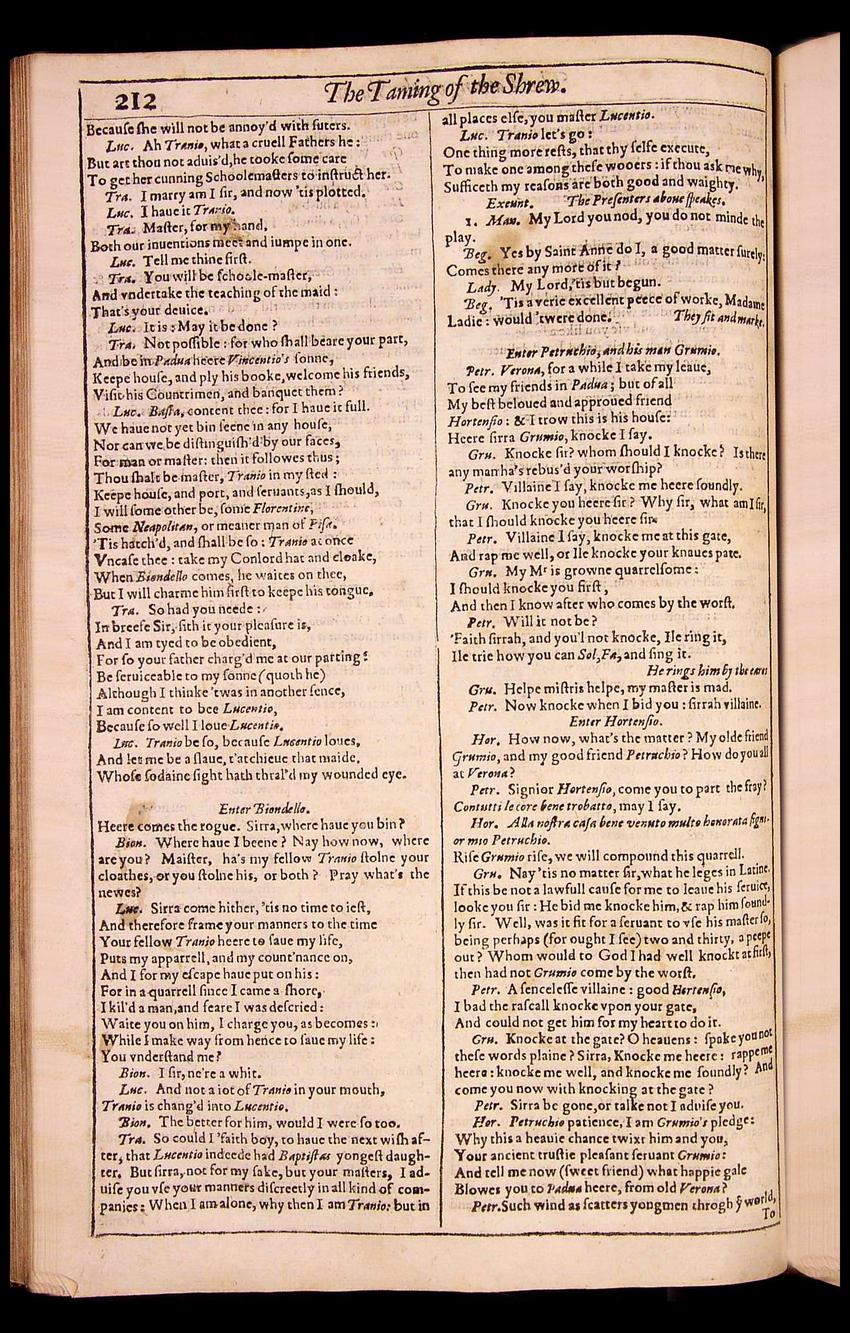 212
The Taming of the Shrew.
Because she will not be annoy'd with suters.
Luc. Ah Tranio, what a cruell Fathers he:
But art thou not aduis'd, he tooke some care
To get her cunning Schoolemasters to instruct her.
Tra. I marry am I sir, and now 'tis plotted.
Luc. I haue it Tranio.
Tra. Master, for my hand,
Both our inuentions meet and iumpe in one.
Luc. Tell me thine first.
Tra. You will be schoole-master,
And vndertake the teaching of the maid:
That's your deuice.
Luc. It is: May it be done?
Tra. Not possible: for who shall beare your part,
And be in Padua heere Vincentio's sonne,
Keepe house, and ply his booke, welcome his friends,
Visit his Countrimen, and banquet them?
Luc. Basta, content thee: for I haue it full.
We haue not yet bin seene in any house,
Nor can we be distinguish'd by our faces,
For man or master: then it followes thus;
Thou shalt be master, Tranio in my sted:
Keepe house, and port, and seruants, as I should,
I will some other be, some Florentine,
Some Neapolitan, or meaner man of Pisa.
'Tis hatch'd, and shall be so: Tranio at once
Vncase thee: take my Conlord hat and cloake,
When Biondello comes, he waites on thee,
But I will charme him first to keepe his tongue.
Tra. So had you neede:
In breefe Sir, sith it your pleasure is,
And I am tyed to be obedient,
For so your father charg'd me at our parting:
Be seruiceable to my sonne (quoth he)
Although I thinke 'twas in another sence,
I am content to bee Lucentio,
Because so well I loue Lucentio.
Luc. Tranio be so, because Lucentio loues,
And let me be a slaue, t'atchieue that maide,
Whose sodaine sight hath thral'd my wounded eye.
Enter Biondello.
Heere comes the rogue. Sirra, where haue you bin?
Bion. Where haue I beene? Nay how now, where
are you? Maister, ha's my fellow Tranio stolne your
cloathes, or you stolne his, or both? Pray what's the
newes?
Luc. Sirra come hither, 'tis no time to iest,
And therefore frame your manners to the time
Your fellow Tranio heere to saue my life,
Puts my apparrell, and my count'nance on,
And I for my escape haue put on his:
For in a quarrell since I came a shore,
I kil'd a man, and feare I was descried:
Waite you on him, I charge you, as becomes:
While I make way from hence to saue my life:
You vnderstand me?
Bion. I sir, ne're a whit.
Luc. And not a iot of Tranio in your mouth,
Tranio is chang'd into Lucentio.
Bion. The better for him, would I were so too.
Tra. So could I 'faith boy, to haue the next wish af-
ter, that Lucentio indeede had Baptistas yongest daugh-
ter. But sirra, not for my sake, but your masters, I ad-
uise you vse your manners discreetly in all kind of com-
panies: When I am alone, why then I am Tranio: but in
all places else, you master Lucentio.
Luc. Tranio let's go:
One thing more rests, that thy selfe execute,
To make one among these wooers: if thou ask me why,
Sufficeth my reasons are both good and waighty.
Exeunt. The Presenters aboue speakes.
1. Man. My Lord you nod, you do not minde the
play.
Beg. Yes by Saint Anne do I, a good matter surely:
Comes there any more of it?
Lady. My Lord, 'tis but begun.
Beg. 'Tis a verie excellent peece of worke, Madame
Ladie: would 'twere done. They sit and marke.
Enter Petruchio, and his man Grumio.
Petr. Verona, for a while I take my leaue,
To see my friends in Padua; but of all
My best beloued and approued friend
Hortensio: & I trow this is his house:
Heere sirra Grumio, knocke I say.
Gru. Knocke sir? whom should I knocke? Is there
any man ha's rebus'd your worship?
Petr. Villaine I say, knocke me heere soundly.
Gru. Knocke you heere sir? Why sir, what am I sir,
that I should knocke you heere sir.
Petr. Villaine I say, knocke me at this gate,
And rap me well, or Ile knocke your knaues pate.
Gru. My Mr is growne quarrelsome:
I should knocke you first,
And then I know after who comes by the worst.
Petr. Will it not be?
'Faith sirrah, and you'l not knocke, Ile ring it,
Ile trie how you can Sol, Fa, and sing it.
He rings him by the eares
Gru. Helpe mistris helpe, my master is mad.
Petr. Now knocke when I bid you: sirrah villaine.
Enter Hortensio.
Hor. How now, what's the matter? My olde friend
Grumio, and my good friend Petruchio? How do you all
at Verona?
Petr. Signior Hortensio, come you to part the fray?
Contutti le core bene trobatto, may I say.
Hor. Alla nostra casa bene venuto multo honorata signi-
or mio Petruchio.
Rise Grumio rise, we will compound this quarrell.
Gru. Nay 'tis no matter sir, what he leges in Latine.
If this be not a lawfull cause for me to leaue his seruice,
looke you sir: He bid me knocke him, & rap him sound-
ly sir. Well, was it fit for a seruant to vse his master so,
being perhaps (for ought I see) two and thirty, a peepe
out? Whom would to God I had well knockt at first,
then had not Grumio come by the worst.
Petr. A sencelesse villaine: good Hortensio,
I bad the rascall knocke vpon your gate,
And could not get him for my heart to do it.
Gru. Knocke at the gate? O heauens: spake you not
these words plaine? Sirra, Knocke me heere: rappe me
heere: knocke me well, and knocke me soundly? And
come you now with knocking at the gate?
Petr. Sirra be gone, or talke not I aduise you.
Hor. Petruchio patience, I am Grumio's pledge:
Why this a heauie chance twixt him and you,
Your ancient trustie pleasant seruant Grumio:
And tell me now (sweet friend) what happie gale
Blowes you to Padua heere, from old Verona?
Petr. Such wind as scatters yongmen throgh ye world,
To